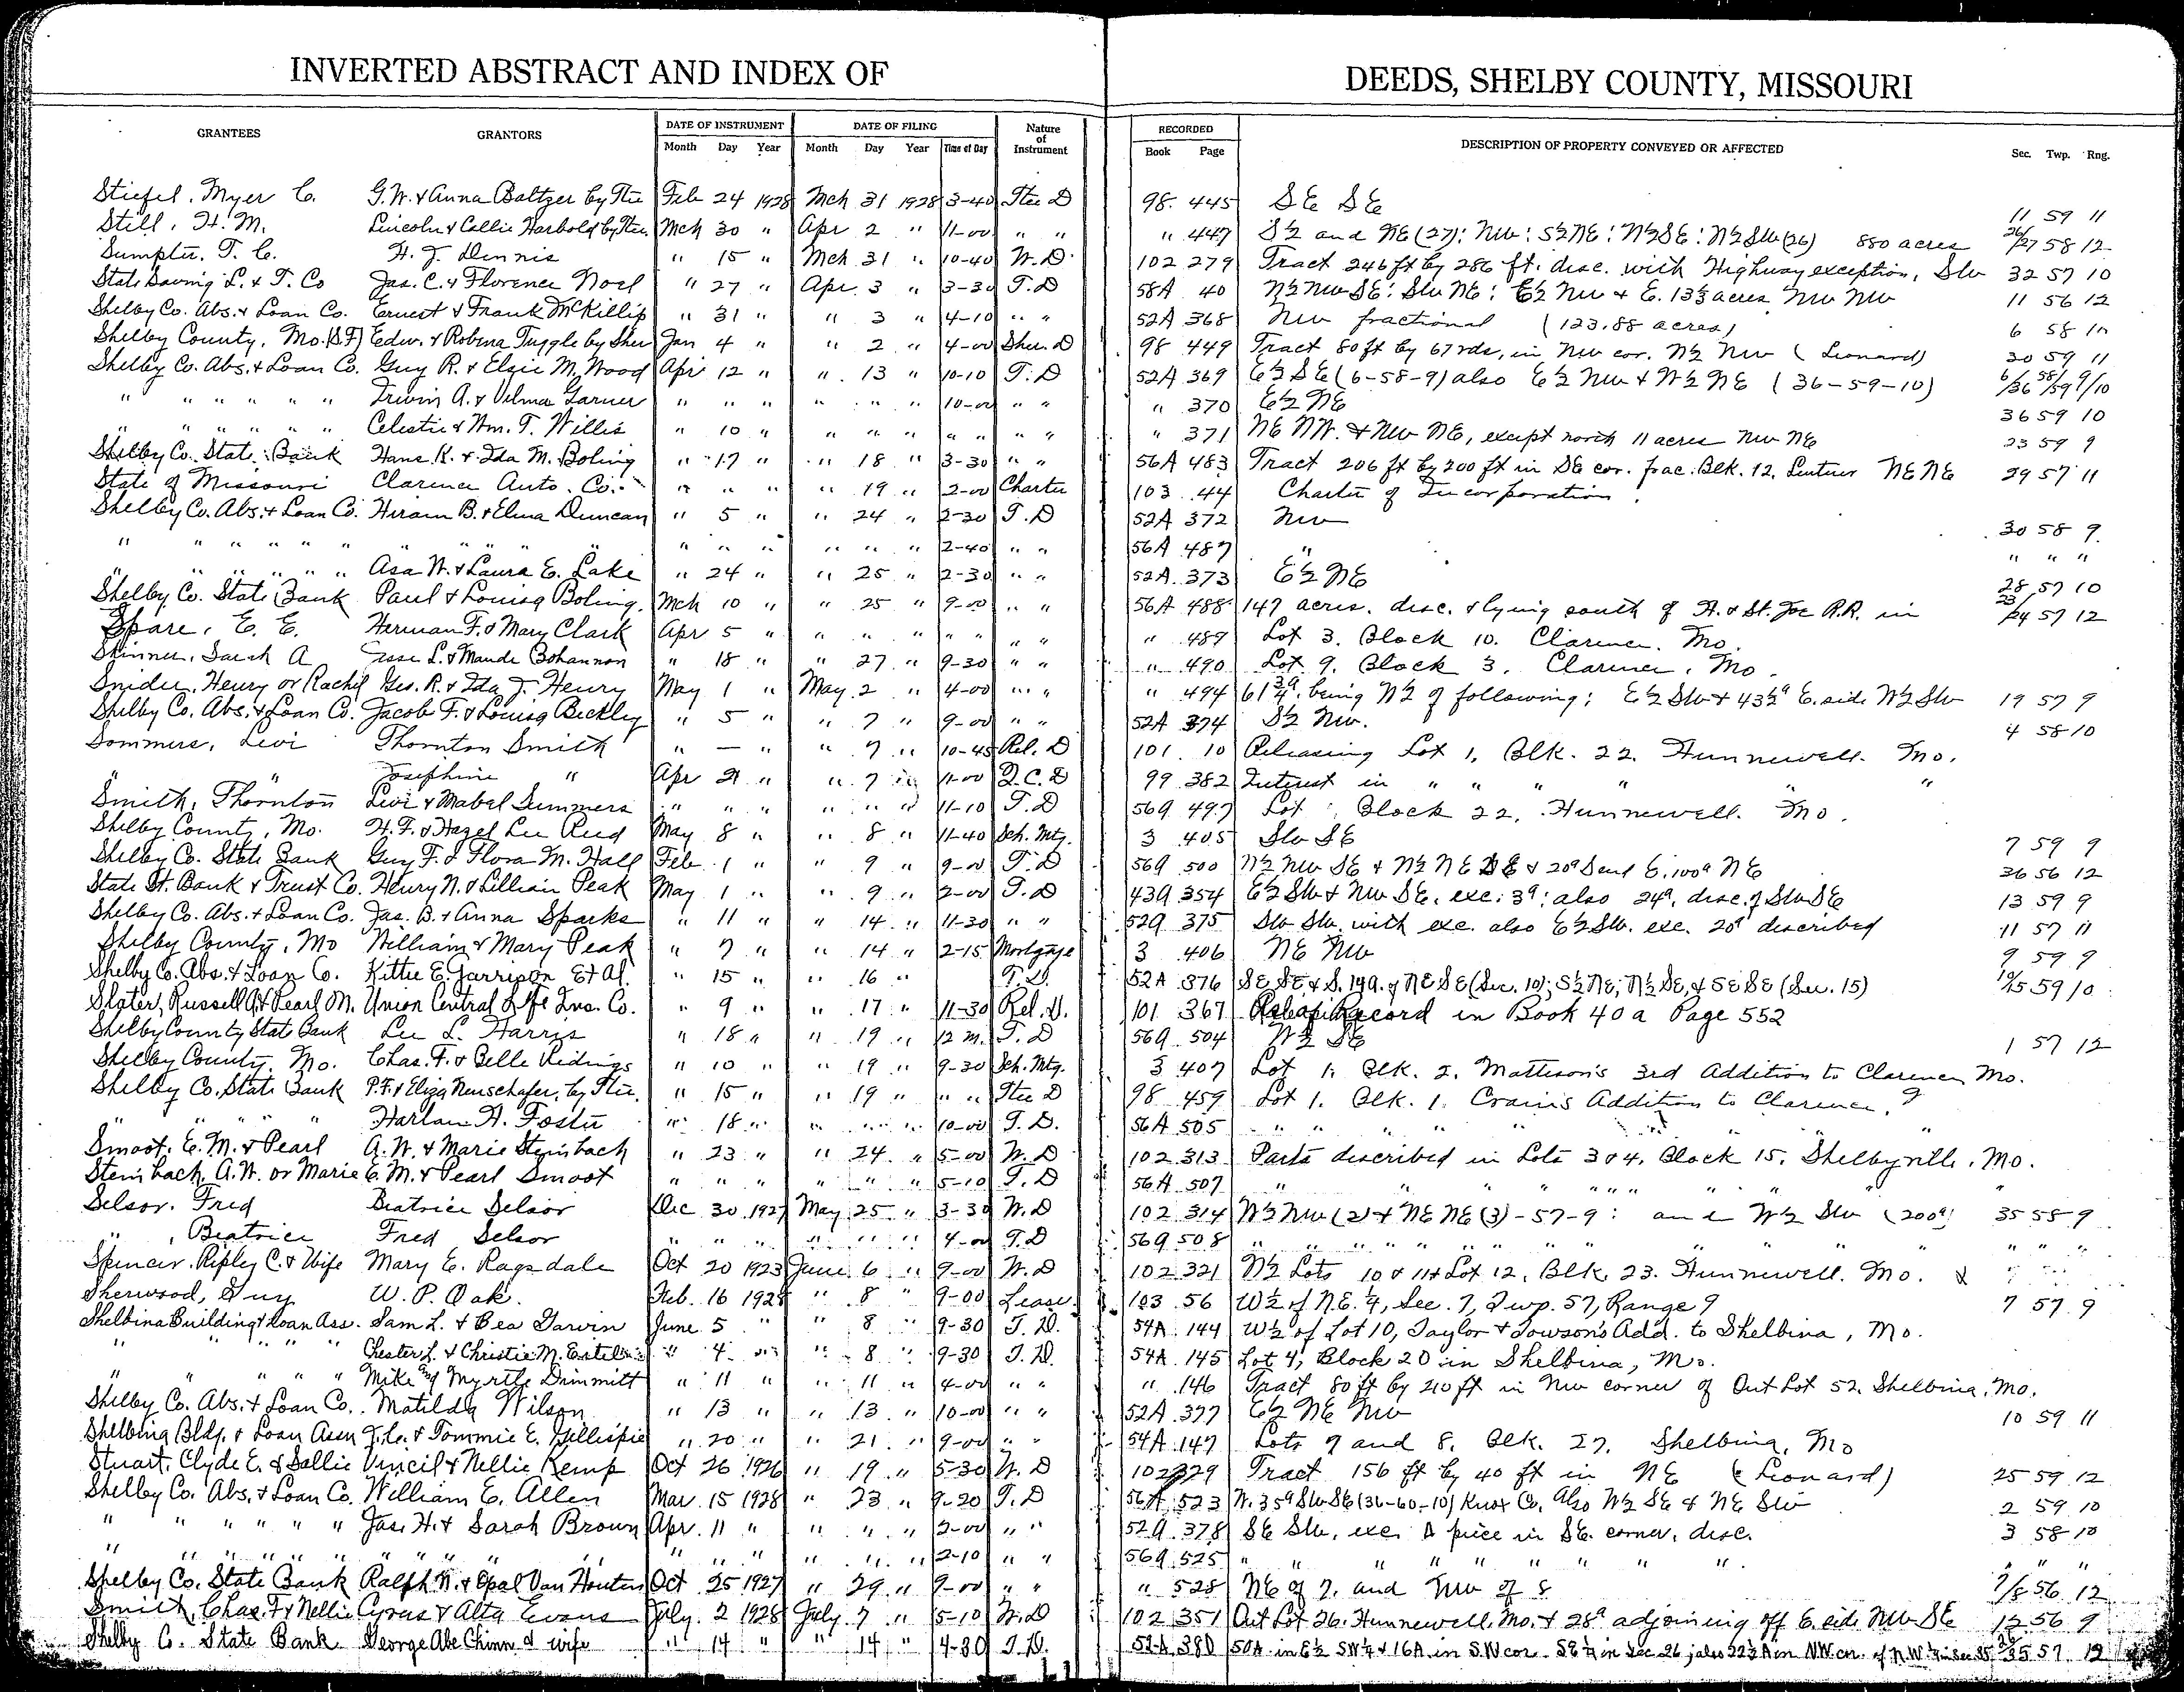 INVERTED ABSTRACT AND INDEX OF DEEDS, SHELBY COUNTY, MISSOURI
GRANTEES GRANTORS DATE OF INSTRUMENT DATE OF FILING Nature of Instrument RECORDED DESCRIPTION OF PROPERTY CONVEYED OR AFFECTED Sec. Twp. Rng.
Month Day Year Month Day Year Time of Day Book Page
Stiefel, Myer C. G.W. & Anna Baltzer by Tte Feb 24 1928 Mch 31 1928 3-40 Ttee D 98 445 SE SE 11 59 11
Still, H. M. Lincoln & Callie Harbold by Ttee Mch 30 " Apr 2 " 11-00 " " " 447 S½ and NE (27): NW: S½NE: N½SE: N½SW (26) 880 acres 26/27 58 12
Sumpter, T. C. H. J. Dennis " 15 " Mch 31 " 10-40 W. D. 102 279 Tract 246 ft by 286 ft. desc. with Highway exception, SW 32 57 10
State Saving L. & T. Co Jas. C. & Florence Noel " 27 " Apr. 3 " 3-30 T. D 58A 40 N½ NW SE: SW NE: E½ NW & E. 13⅓ acres NW NW 11 56 12
Shelby Co. Abs. & Loan Co. Ernest & Frank McKillip " 31 " " 3 " 4-10 " " 52A 368 NW fractional (123.88 acres) 6 58 10
Shelby County, Mo. (S.F) Edw. & Robina Tuggle by Sher Jan 4 " " 2 " 4-00 Sher. D 98 449 Tract 80 ft by 67 rds, in NW cor. N½ NW (Leonard) 20 59 11
Shelby Co. Abs. & Loan Co. Guy R. & Elzie M. Wood Apr 12 " " 13 " 10-10 T. D 52A 369 E½ SE (6-58-9) also E½ NW & W½ NE (36-59-10) 6/36 58/59 9/10
" " " " " " Irwin A. & Velma Garner " " " " " " 10-00 " " " 370 E½ NE 36 59 10
" " " " " " Celestie & Wm. T. Willis " 10 " " " " " " " " " 371 NE NW. & NW NE, except north 11 acres NW NE 23 59 9
Shelby Co. State Bank Hans K. & Ida M. Boling " 17 " " 18 " 3-30 " " 56A 483 Tract 206 ft by 200 ft in SE cor. frac. Blk. 12, Lentner NE NE 29 57 11
State of Missouri Clarence Auto. Co. " " " " 19 " 2-00 Charter 103 44 Charter of Incorporation.
Shelby Co. Abs. & Loan Co. Hiram B. & Elma Duncan " 5 " " 24 " 2-30 T. D 52A 372 NW 30 58 9
" " " " " " " " " " " " " " " " " 2-40 " " 56A 487 " " " "
" " " " " " Asa W. & Laura E. Lake " 24 " " 25 " 2-30 " " 52A 373 E½ NE 28 57 10
Shelby Co. State Bank Paul & Louisa Boling. Mch 10 " " 25 " 9-00 " " 56A 488 147 acres. desc. & lying south of H. & St. Joe R.R. in 23/24 57 12
Spare, E. E. Herman F. & Mary Clark Apr 5 " " " " " " " " " 489 Lot 3. Block 10. Clarence. Mo.
Skinner, Sarah A Jesse L. & Maude Bohannon " 18 " " 27 " 9-30 " " " 490 Lot 9. Block 3. Clarence, Mo.
Snider, Henry or Rachel Geo. R. & Ida J. Henry May 1 " May 2 " 4-00 " " " 494 61¾ᵃ. being N½ of following: E½ SW & 43½ᵃ E. side W½ SW 19 57 9
Shelby Co. Abs. & Loan Co. Jacob F. & Louisa Beckley " 5 " " 7 " 9-00 " " 52A 374 S½ NW. 4 58 10
Sommers, Levi Thornton Smith " — " " 7 " 10-45 Rel. D 101 10 Releasing Lot 1, Blk. 22. Hunnewell. Mo.
" " Josephine " Apr 21 " " 7 " 11-00 Q.C.D 99 382 Interest in " " " " "
Smith, Thornton Levi & Mabel Summers " " " " " " 11-10 T. D 56a 497 Lot Block 22, Hunnewell. Mo.
Shelby County, Mo. H. F. & Hazel Lee Reed May 8 " " 8 " 11-40 Sch. Mtg. 3 405 SW SE 7 59 9
Shelby Co. State Bank Guy F. & Flora M. Hall Feb 1 " " 9 " 9-00 T. D 56a 500 N½ NW SE & N½ NE SE & 20ᵃ S end E. 100ᵃ NE 36 56 12
State St. Bank & Trust Co. Henry N. & Lillian Peak May 1 " " 9 " 2-00 T. D 43a 354 E½ SW & NW SE. exc. 3ᵃ; also 24ᵃ, desc. of SW SE 13 59 9
Shelby Co. Abs. & Loan Co. Jas. B. & Anna Sparks " 11 " " 14 " 11-30 " " 52a 375 SW SW. with exc. also E½ SW. exc. 20ᵃ described 11 57 11
Shelby County, Mo William & Mary Peak " 7 " " 14 " 2-15 Mortgage 3 406 NE NW 9 59 9
Shelby Co. Abs. & Loan Co. Kittie E. Garrison Et Al. " 15 " " 16 " T. D. 52A 376 SE SE & S. 14a. of NE SE (Sec. 10); S½ NE; N½ SE, & SE SE (Sec. 15) 10/15 59 10
Slater, Russell A & Pearl M. Union Central Life Ins. Co. " 9 " " 17 " 11-30 Rel. D. 101 367 Record in Book 40a Page 552
Shelby County State Bank Lee L. Harris " 18 " " 19 " 12 M. T. D 56a 504 W½ SE 1 57 12
Shelby County, Mo. Chas. F. & Belle Ridings " 10 " " 19 " 9-30 Sch. Mtg. 3 407 Lot 1. Blk. 2. Mattison's 3rd Addition to Clarence, Mo.
Shelby Co. State Bank P. F. & Eliza Neuschafer, by Ttee. " 15 " " 19 " " " Ttee D 98 459 Lot 1. Blk. 1. Crain's Addition to Clarence.
" " " " Harlan H. Foster " 18 " " " " 10-00 T. D. 56A 505 " " " " " "
Smoot, E. M. & Pearl A. W. & Marie Steinbach " 23 " " 24 " 5-00 W. D 102 313 Parts described in Lots 3 & 4, Block 15. Shelbyville, Mo.
Steinbach, A. W. or Marie E. M. & Pearl Smoot " " " " " " 5-10 T. D 56A 507 " " " " " " " " "
Selsor, Fred Beatrice Selsor Dec 30 1927 May 25 " 3-30 W. D 102 314 W½ NW (2) & NE NE (3)-57-9: and W½ SW (200ᵃ) 35 58 9
" , Beatrice Fred Selsor " " " " " " 4-00 T. D 56a 508 " " " " " " " " " " "
Spencer, Ripley C. & Wife Mary E. Ragsdale Oct 20 1923 June 6 " 9-00 W. D 102 321 N½ Lots 10 & 11 & Lot 12, Blk. 23. Hunnewell. Mo.
Sherwood, Guy W. P. Oak. Feb. 16 1928 " 8 " 9-00 Lease 103 56 W½ of N.E. ¼, Sec. 7, Twp. 57, Range 9 7 57 9
Shelbina Building & Loan Ass. Sam L. & Bea Garvin June 5 " " 8 " 9-30 T. D. 54A 144 W½ of Lot 10, Taylor & Towson's Add. to Shelbina, Mo.
" " " " " Chester L. & Christie M. " 4 " " 8 " 9-30 T. D. 54A 145 Lot 4, Block 20 in Shelbina, Mo.
" " " " " Mike and Myrtle Dimmitt " 11 " " 11 " 4-00 " " " 146 Tract 80 ft by 210 ft in NW corner of Out Lot 52, Shelbina, Mo.
Shelby Co. Abs. & Loan Co. Matilda Wilson " 13 " " 13 " 10-00 " " 52A 377 E½ NE NW 10 59 11
Shelbina Bldg. & Loan Assn & Tommie E. Gillispie " 20 " " 21 " 9-00 " " 54A 147 Lots 7 and 8. Blk. 27. Shelbina, Mo
Stuart, Clyde E. & Sallie Vincil & Nellie Kemp Oct 26 1926 " 19 " 5-30 W. D 102 329 Tract 156 ft by 40 ft in NE (Leonard) 25 59 12
Shelby Co. Abs. & Loan Co. William E. Allen Mar. 15 1928 " 23 " 9-20 T. D 56A 523 W. 35ᵃ SW SE (36-60-10) Knox Co. Also W½ SE & NE SW 2 59 10
" " " " " " Jas. H. & Sarah Brown Apr. 11 " " " " 2-00 " " 52a 378 SE SW, exc. A piece in SE. corner, desc. 3 58 10
" " " " " " " " " " " " 2-10 " " 56a 525 " " " " " " " " " " "
Shelby Co. State Bank Ralph W. & Opal Van Houten Oct 25 1927 " 29 " 9-00 " " " 528 NE of 7. and NW of 8 7/8 56 12
Smith, Chas. F. & Nellie Cyrus & Alta Evans July 2 1928 July 7 " 5-10 W. D 102 351 Out Lot 26. Hunnewell, Mo. & 28ᵃ adjoining off E. side NW SE 12 56 9
Shelby Co. State Bank George Abe Chinn & wife " 14 " " 14 " 4-30 T. D. 52A 380 50A in E½ SW¼ & 16A in S.W cor. SE¼ in Sec 26; also 22½ A in N.W. cor. of N.W.¼ in Sec. 35 26/35 57 12